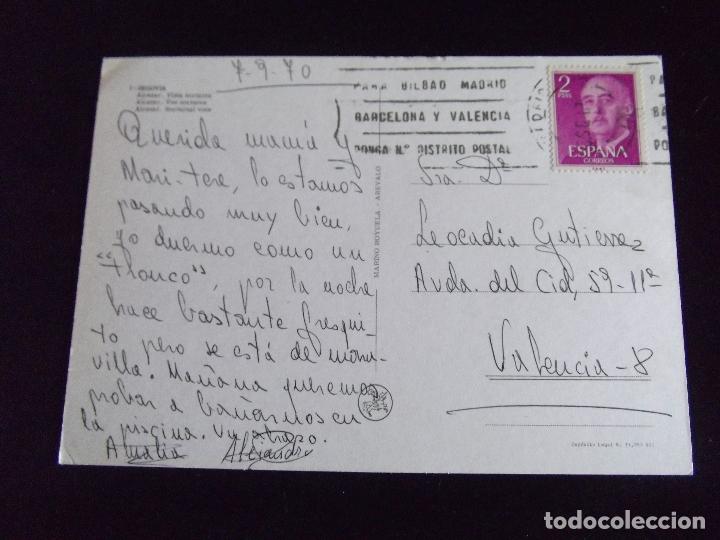 7-9-70
SEGOVIA
PARA BILBAO MADRID
BARCELONA Y VALENCIA
PONGA N.º DISTRITO POSTAL
2
PTAS
ESPAÑA
CORREOS
Querida mamá y
Mari-Tere, lo estamos
pasando muy bien,
yo duermo como un
"Tronco", por la noche
hace bastante fresqui-
to pero se está de mara-
villa. Mañana queremos
probar a bañarnos en
la piscina. Un abrazo.
Amalia Alejandro
MARINO HOYUELA - AREVALO
Sra. Dª
Leocadia Gutierrez
Avda. del Cid, 59-11ª
Valencia-8
Depósito Legal B.
todocoleccion
todocoleccion.net